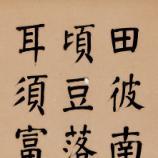 田彼南
頃豆落
耳須富